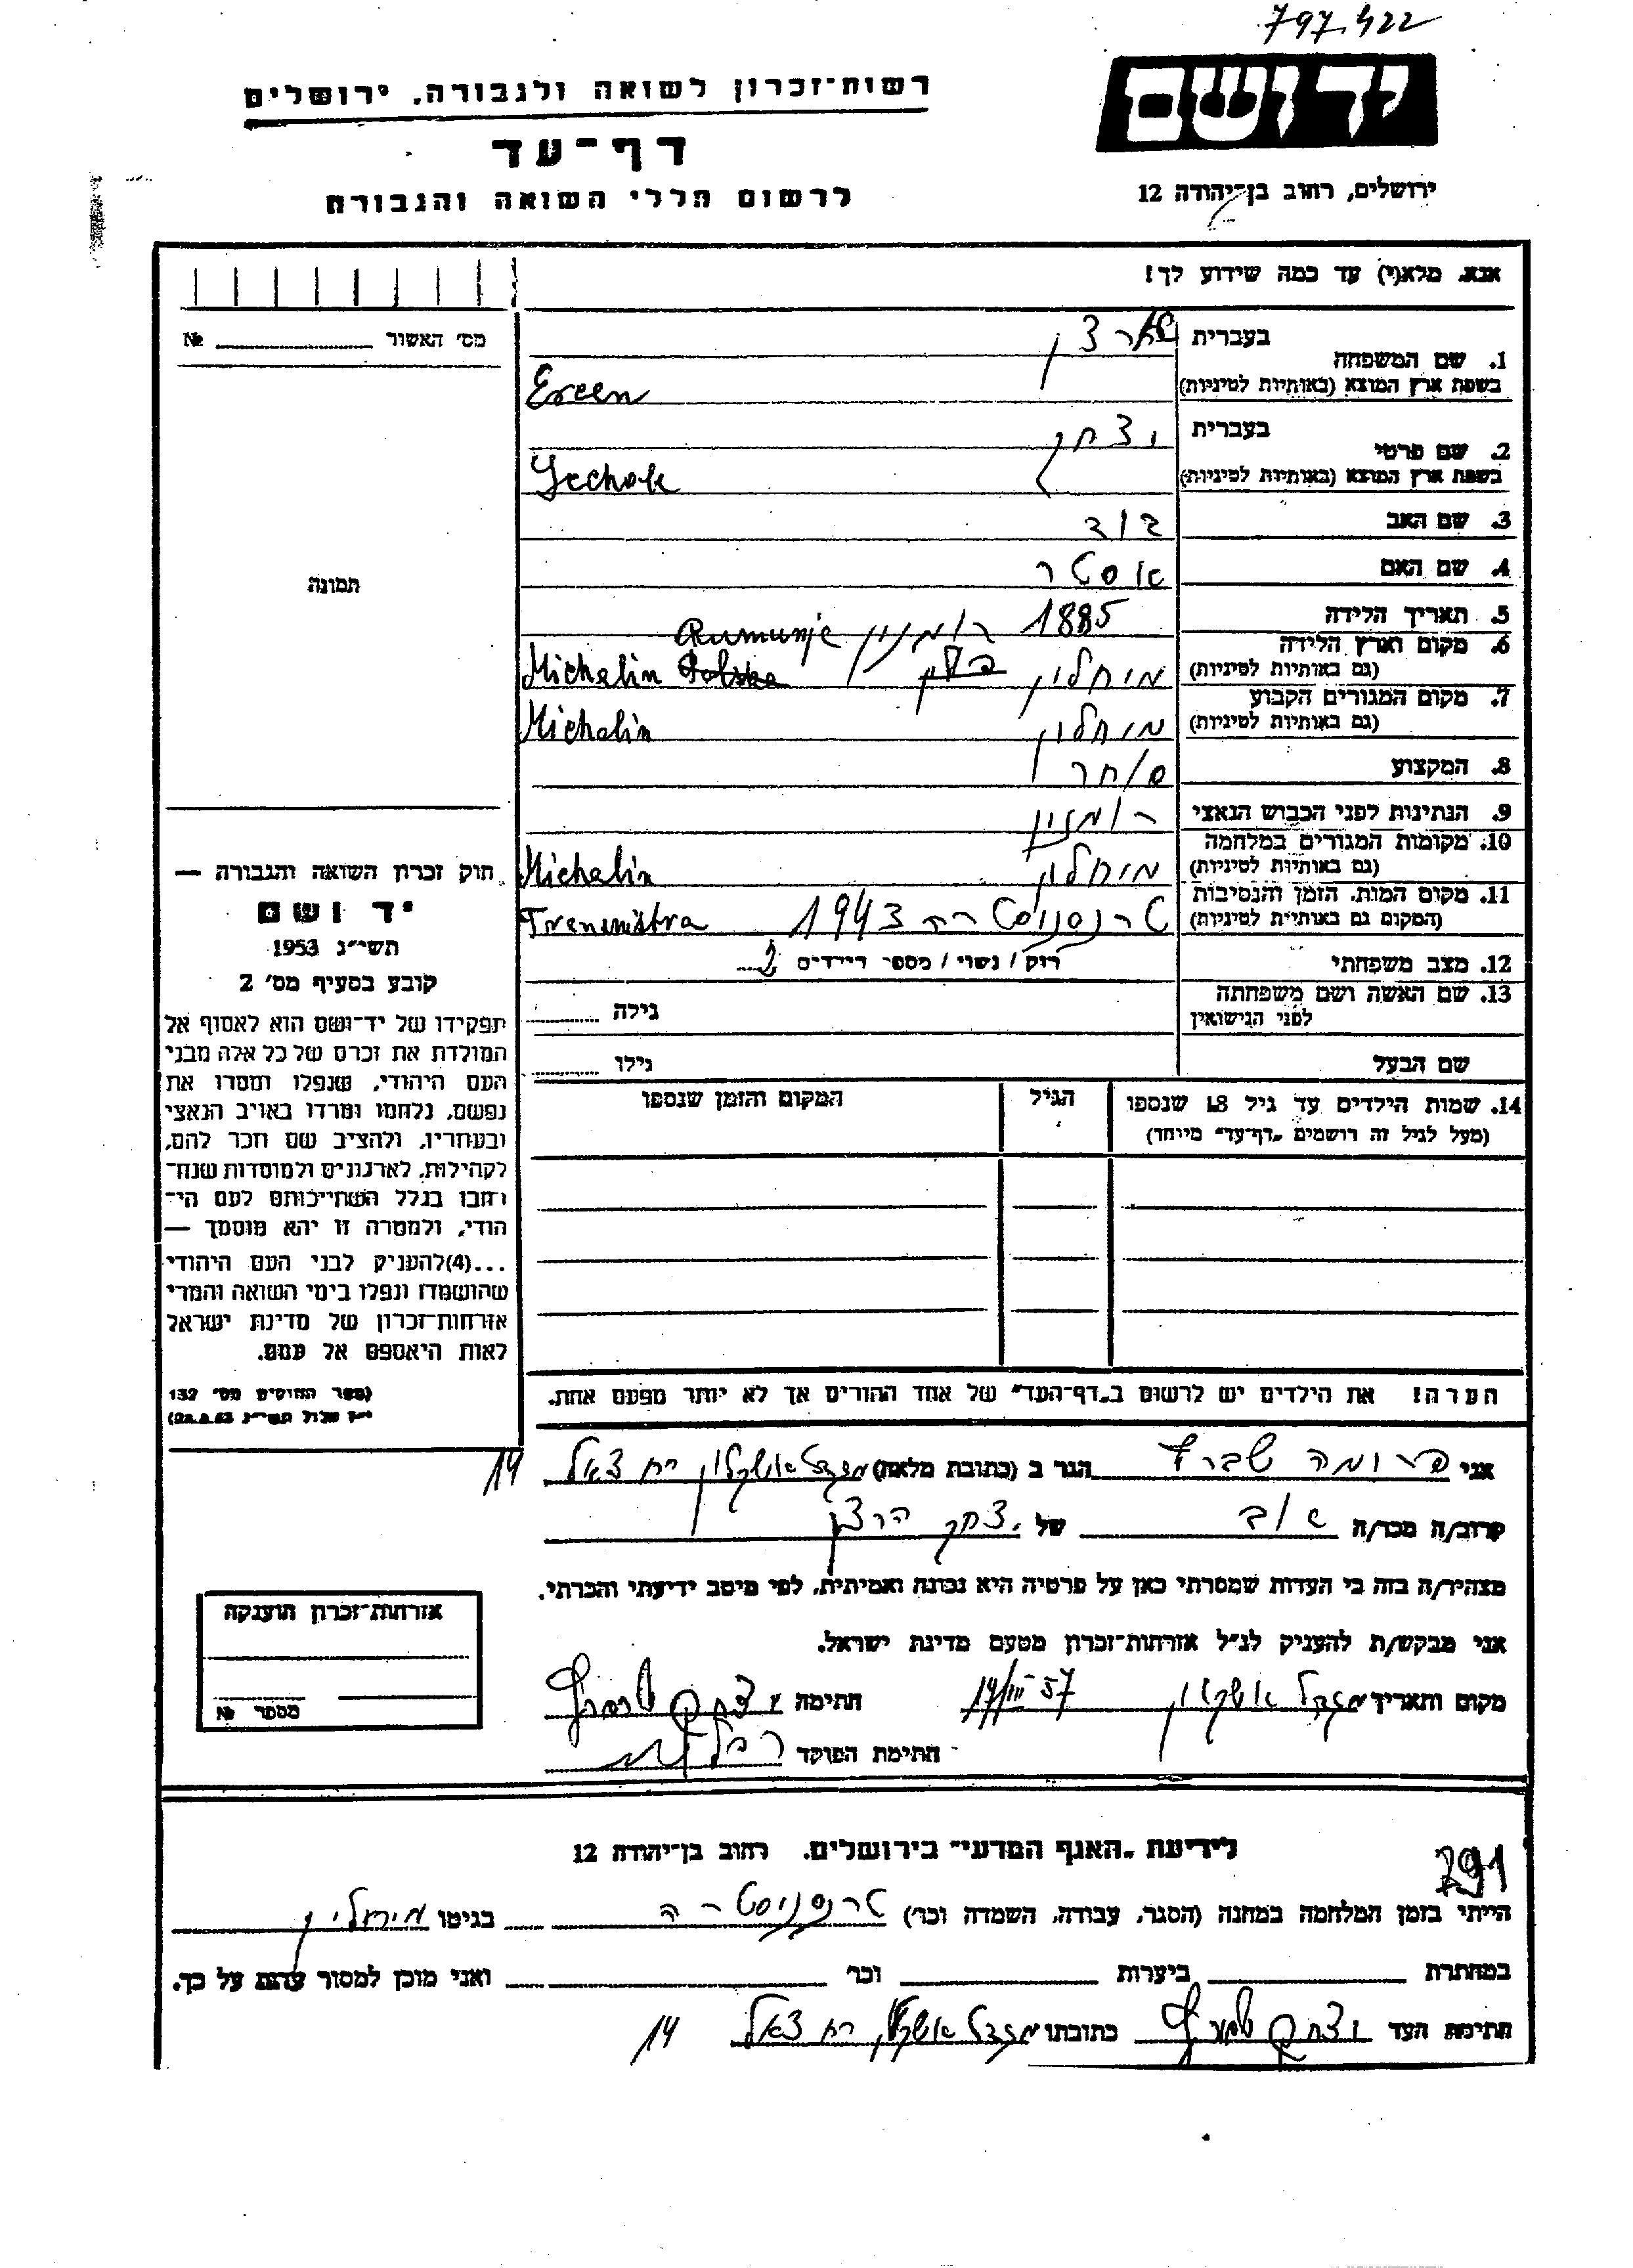 797.422
יד ושם
רשות־זכרון לשואה ולגבורה, ירושלים
דף־עד
לרשום חללי השואה והגבורה
ירושלים, רחוב בן־יהודה 12
אנא, מלא(י) עד כמה שידוע לך!
מס׳ האשור № ______
1. שם המשפחה
בעברית
בשפת ארץ המוצא (באותיות לטיניות)
2. שם פרטי
בעברית יצחק
בשפת ארץ המוצא (באותיות לטיניות)
3. שם האב דוד
4. שם האם אסטר
5. תאריך הלידה 1885
רומניון Rumunje
6. מקום וארץ הלידה
(גם באותיות לטיניות) מיחלין Michalin
7. מקום המגורים הקבוע
(גם באותיות לטיניות) מיחלין Michalin
8. המקצוע סוחר
9. הנתינות לפני הכבוש הנאצי
10. מקומות המגורים במלחמה
(גם באותיות לטיניות) מיחלין Michalin
11. מקום המות, הזמן והנסיבות
(המקום גם באותיות לטיניות) טרנסניסטרה 1943
12. מצב משפחתי רוק / נשוי / מספר הילדים 2
13. שם האשה ושם משפחתה
לפני הנישואין גילה
שם הבעל גילו
14. שמות הילדים עד גיל 18 שנספו הגיל המקום והזמן שנספו
(מעל לגיל זה רושמים „דף־עד״ מיוחד)
הערה! את הילדים יש לרשום ב„דף־העד״ של אחד ההורים אך לא יותר מפעם אחת.
תמונה
חוק זכרון השואה והגבורה —
יד ושם
תשי״ג 1953
קובע בסעיף מס׳ 2
תפקידו של יד־ושם הוא לאסוף אל
המולדת את זכרם של כל אלה מבני
העם היהודי, שנפלו ומסרו את
נפשם, נלחמו ומרדו באויב הנאצי
ובעוזריו, ולהציב שם וזכר להם,
לקהילות, לארגונים ולמוסדות שנח־
רבו בגלל השתייכותם לעם הי־
הודי, ולמטרה זו יהא מוסמך —
...(4) להעניק לבני העם היהודי
שהושמדו ונפלו בימי השואה והמרי
אזרחות־זכרון של מדינת ישראל
לאות היאספם אל עמם.
(ספר החוקים מס׳ 132
י״ז אלול תשי״ג 28.8.53)
אני פרומה הגר ב (כתובת מלאה) מגדל אשקלון 14
קרוב/ה מכר/ה של יצחק הרצן
מצהיר/ה בזה כי העדות שמסרתי כאן על פרטיה היא נכונה ואמיתית, לפי מיטב ידיעתי והכרתי.
אני מבקש/ת להעניק לנ״ל אזרחות־זכרון מטעם מדינת ישראל.
מקום ותאריך מגדל אשקלון 14/III 57 חתימה יצחק
חתימת הפוקד
אזרחות־זכרון הוענקה
מספר №
לידיעת „האגף המדעי״ בירושלים, רחוב בן־יהודה 12
291
הייתי בזמן המלחמה במחנה (הסגר, עבודה, השמדה וכו׳) טרנסניסטרה בגיטו מיחלין
במחתרת ביערות וכו׳ ואני מוכן למסור עדות על כך.
חתימת העד יצחק כתובתו מגדל אשקלון 14